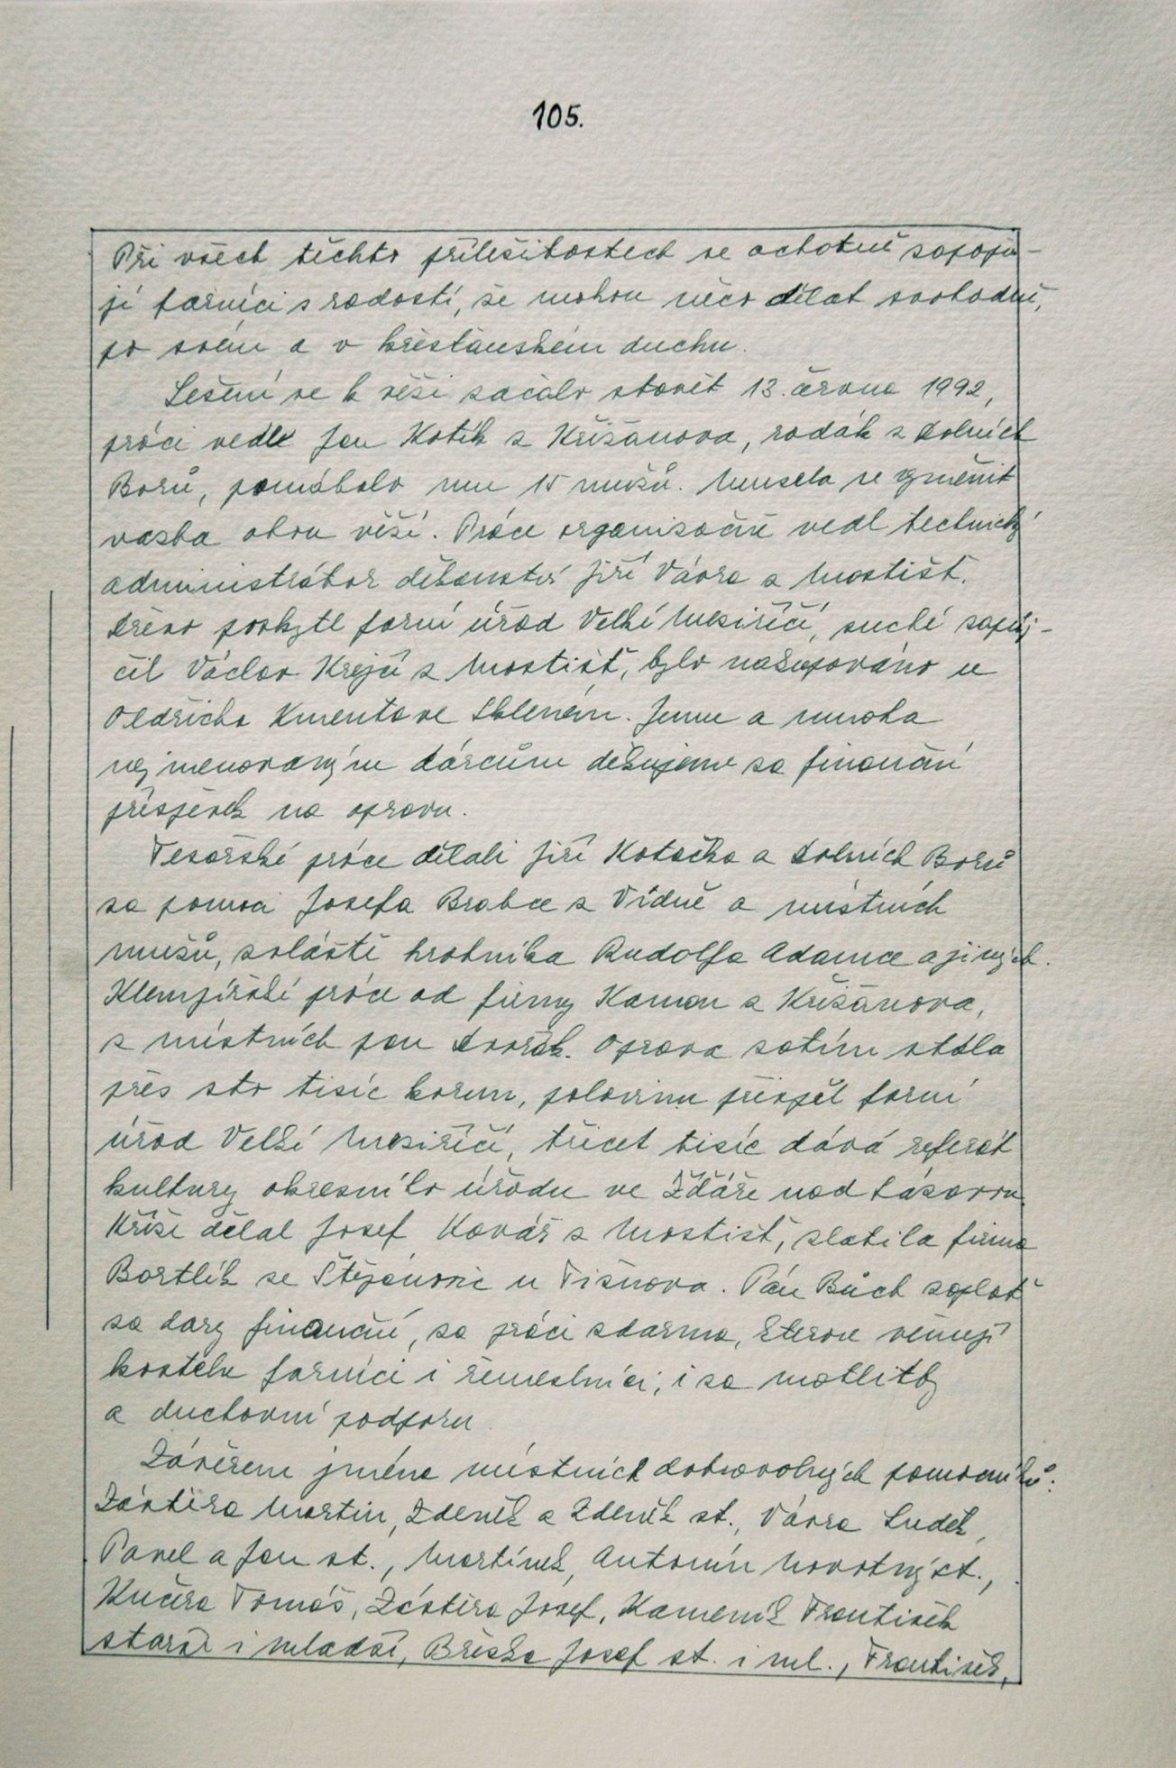 105.
Při všech těchto příležitostech se ochotně zapoju-
jí farníci s radostí, že mohou něco dělat svobodně,
po svém a v křesťanském duchu.
Lešení se k věži začalo stavět 13. června 1992,
práci vedl Jan Kotík z Křižanova, rodák z Dolních
Borů, pomáhalo mu 15 mužů. Musela se vyměnit
vazba obou věží. Práce organisačně vedl technický
administrátor děkanství Jiří Vávra z Mostišť.
Dřevo poskytl farní úřad Velké Meziříčí, suché zapůj-
čil Václav Krejčí z Mostišť, bylo nakupováno u
Oldřicha Kmenta ve Skleném. Jemu a mnoha
nejmenovaným dárcům děkujeme za finanční
příspěvek na opravu.
Tesařské práce dělali Jiří Kotačka a Dolních Borů
za pomoci Josefa Brabce z Vídně a místních
mužů, zvláště hrobníka Rudolfa Adamce a jiných.
Klempířské práce od firmy Kaman z Křižanova,
z místních pan Dvořák. Oprava zatím stála
přes sto tisíc korun, polovinu přispěl farní
úřad Velké Meziříčí, třicet tisíc dává referát
kultury okresního úřadu ve Žďáře nad Sázavou.
Kříže dělal Josef Kovář z Mostišť, zlatila firma
Bartlík ze Štěpánovic u Tišnova. Pán Bůh zaplať
za dary finanční, za práci zdarma, kterou věnují
kostelu farníci i řemeslníci, i za modlitby
a duchovní podporu
Závěrem jména místních dobrovolných pomocníků:
Zástěra Martin, Zdeněk a Zdeněk st., Vávra Luděk,
Pavel a Jan st., Martínek, Antonín Novotný st.,
Kučera Tomáš, Zástěra Josef, Kameník František
starší i mladší, Březka Josef st. i ml., František,